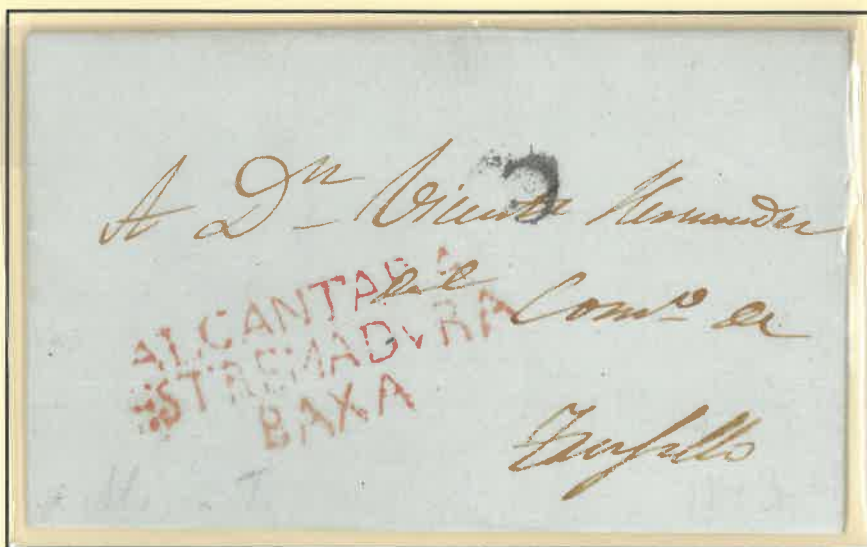 A Dn Vicente Hernandez
del Comº de
Trujillo
ALCANTARA
ESTREMADURA
BAXA